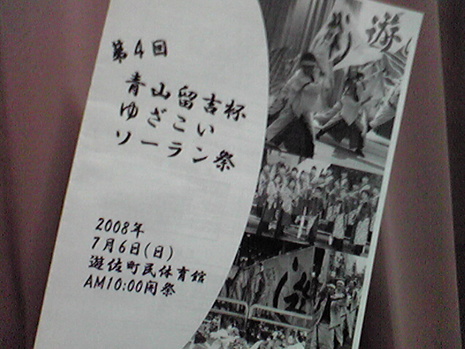 第4回
青山留吉杯
ゆざこい
ソーラン祭
2008年
7月6日(日)
遊佐町民体育館
AM10:00開祭
遊